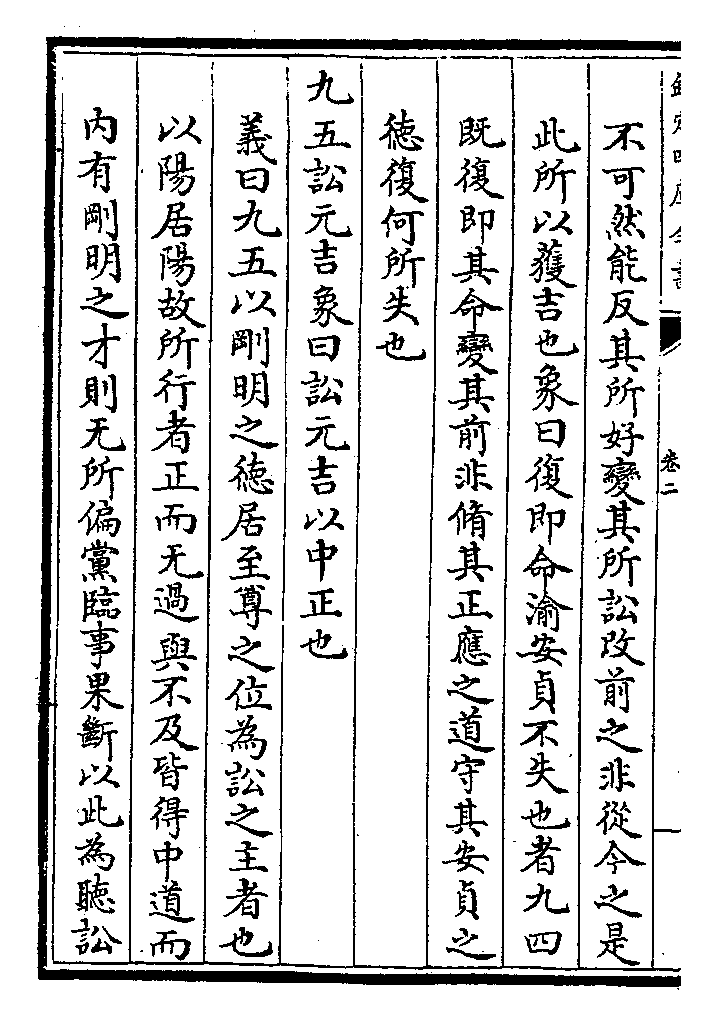 欽定四庫全書
卷二
不可然能反其所好變其所訟改前之非從今之是
此所以獲吉也象曰復即命渝安貞不失也者九四
既復即其命變其前非脩其正應之道守其安貞之
徳復何所失也
九五訟元吉象曰訟元吉以中正也
義曰九五以剛明之徳居至尊之位為訟之主者也
以陽居陽故所行者正而无過與不及皆得中道而
内有剛明之才則无所偏黨臨事果斷以此為聽訟